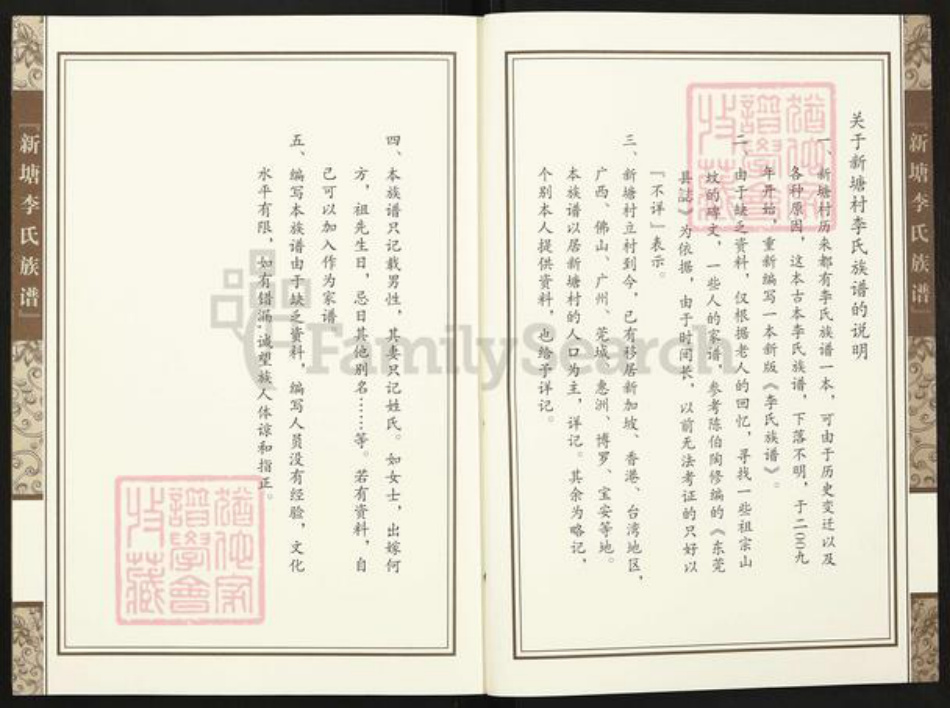 关于新塘村李氏族谱的说明
一、新塘村历来都有李氏族谱一本，可由于历史变迁以及
各种原因，这本古本李氏族谱，下落不明，于二〇〇九
年开始，重新编写一本新版《李氏族谱》。
二、由于缺乏资料，仅根据老人的回忆，寻找一些祖宗山
坟的碑文，一些人的家谱，参考陈伯陶修编的《东莞
具誌》为依据，由于时间长，以前无法考证的只好以
『不详』表示。
三、新塘村立村到今，已有移居新加坡、香港、台湾地区，
广西、佛山、广州、莞城、惠洲、博罗、宝安等地。
本族谱以居新塘村的人口为主，详记。其余为略记，
个别本人提供资料，也给予详记。
四、本族谱只记载男性，其妻只记姓氏。如女士，出嫁何
方，祖先生日，忌日其他别名……等。若有资料，自
己可以加入作为家谱
五、编写本族谱由于缺乏资料，编写人员没有经验，文化
水平有限，如有错漏，诚望族人体谅和指正。
『新塘李氏族谱』
『新塘李氏族谱』
FamilySearch
譜學會
收藏
譜學會
收藏